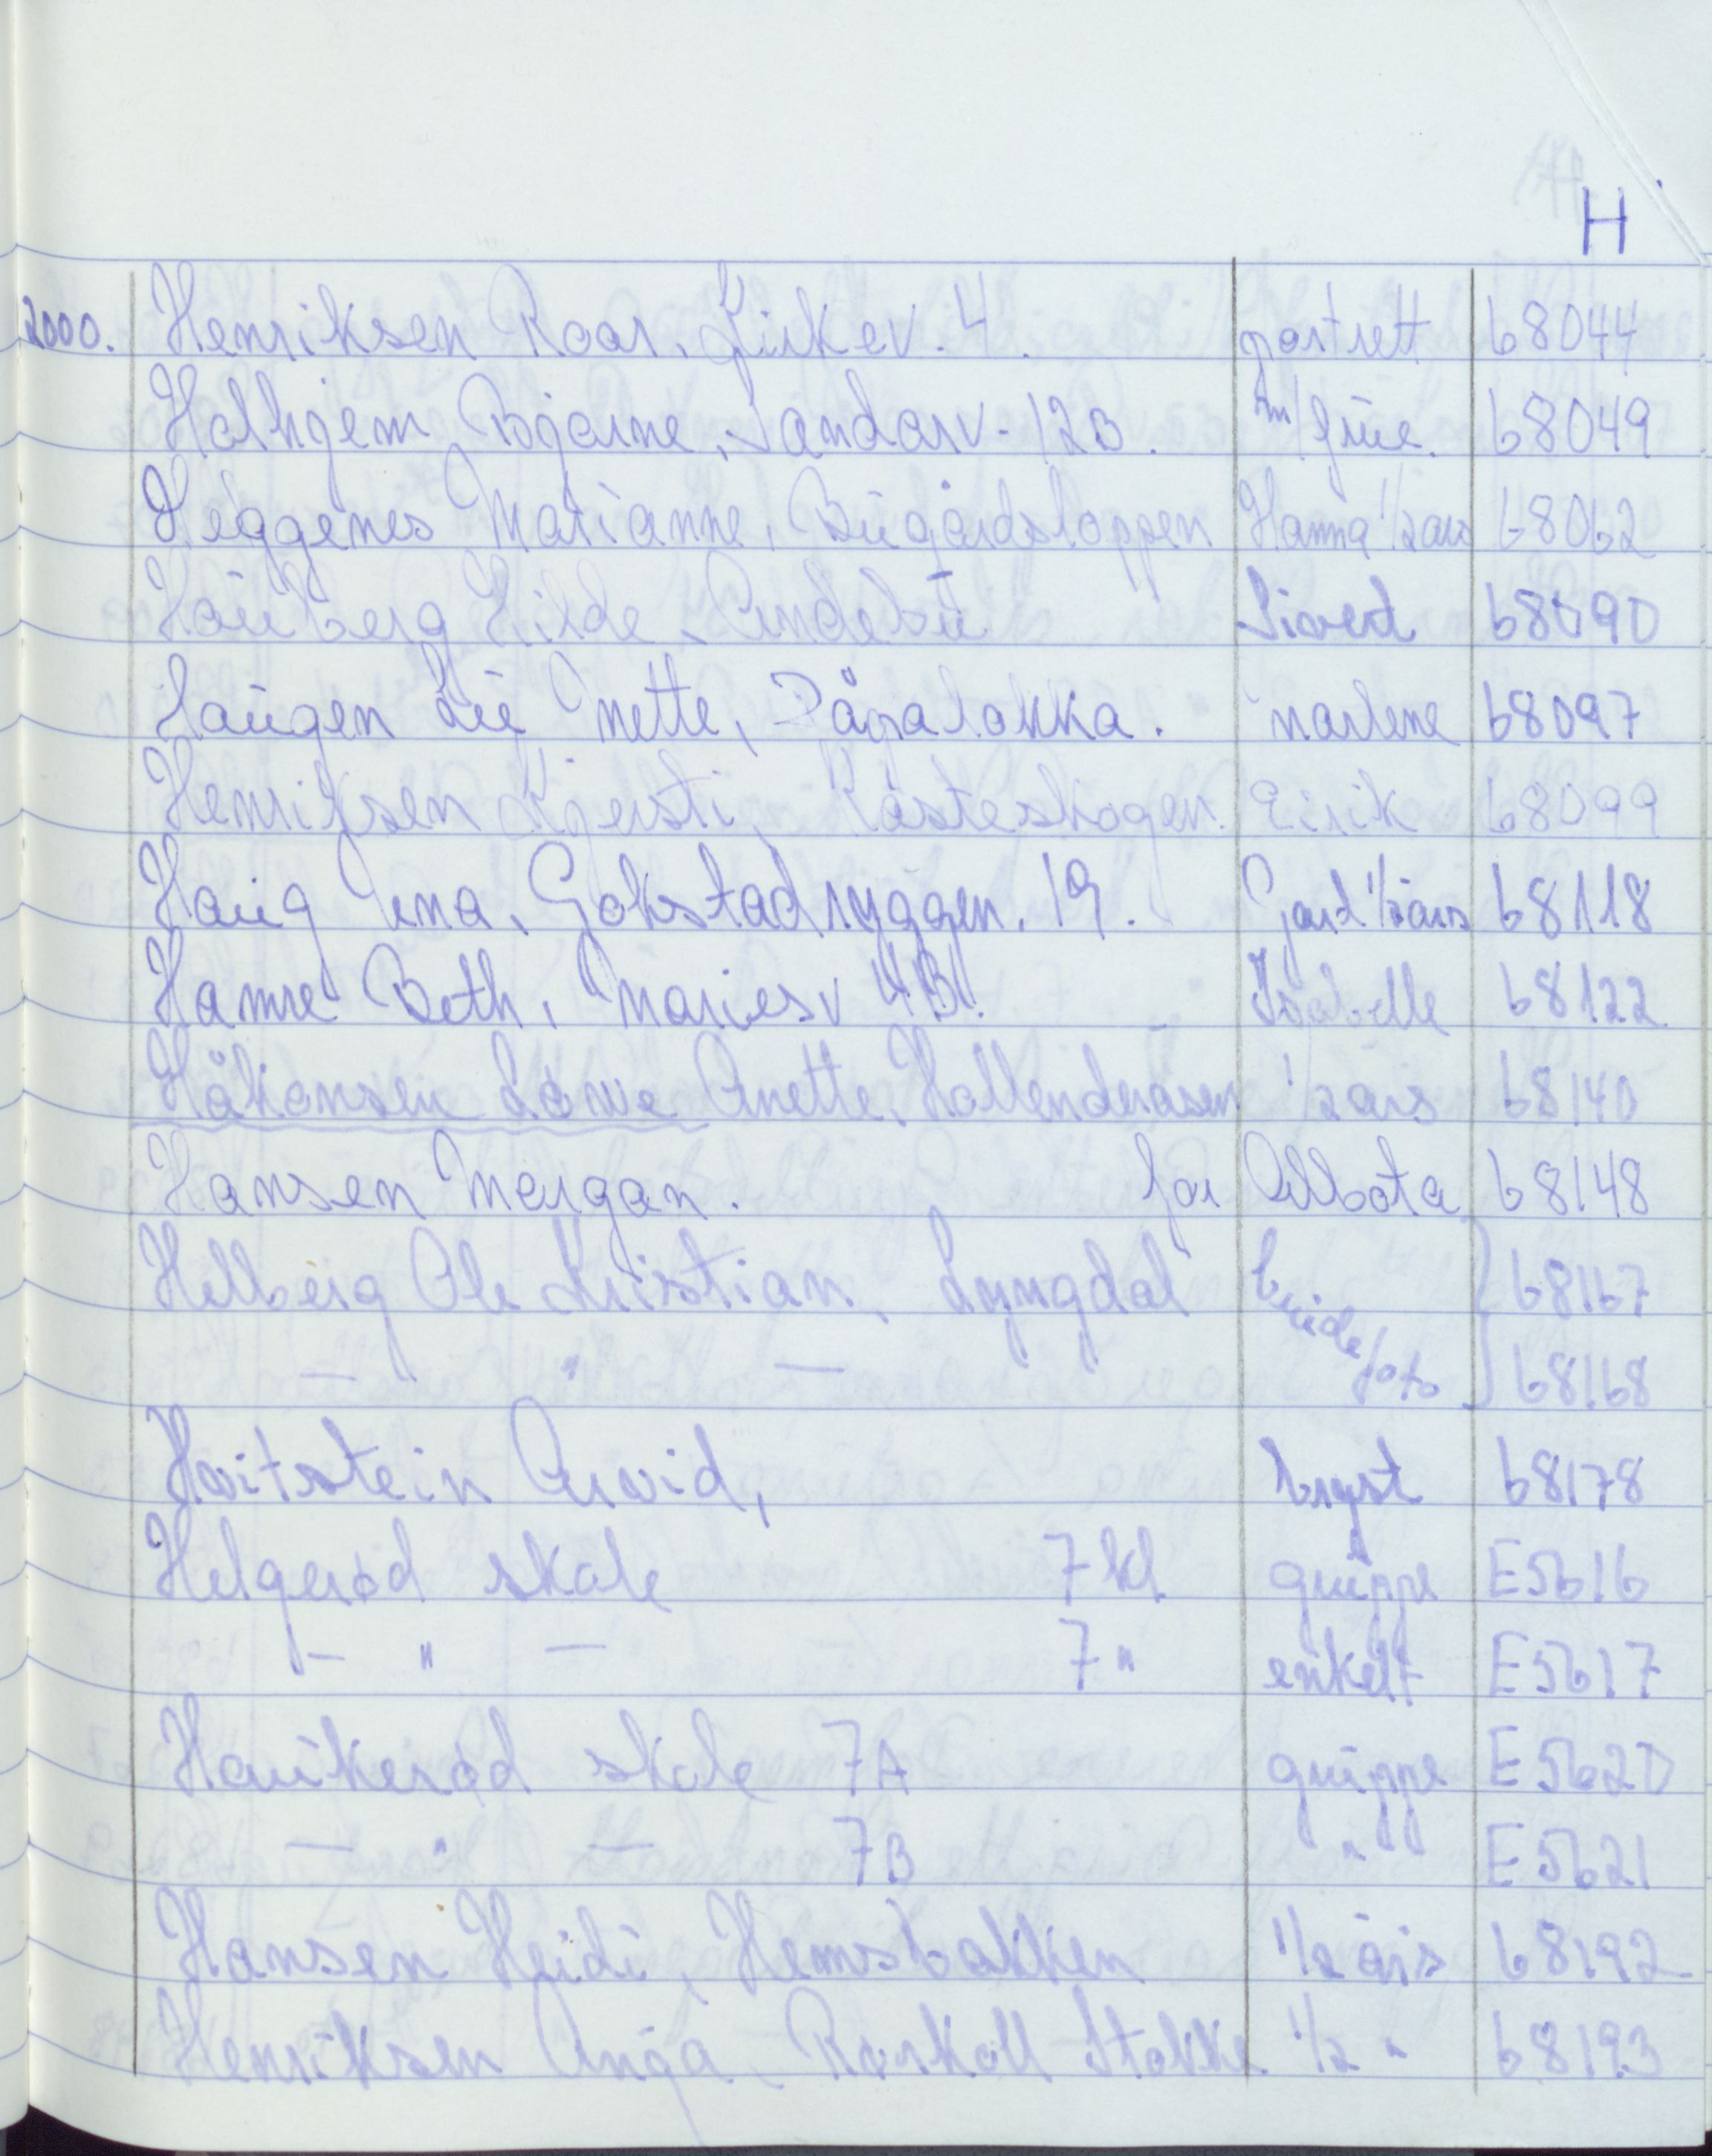 H
2000. Henriksen Roar, Kirkev. 4. portrett 68044
Holhjem Bjarne, Sandarv. 12B. m/frue. 68049
Heggenes Marianne, Bugårdstoppen Hanna 1/2 års 68062
Hauberg Hilde, Andebu Sivert 68090
Haugen Lie Mette, Påralokka. Marlene 68097
Henriksen Kjersti, Råsteskogen. Eirik 68099
Haug Una, Gokstadryggen. 19. Gard 1/2 års 68118
Hamre Beth, Mariesv 4B. Isabelle 68122
Håkonsen Løwe Anette, Hollenderåsen 1/2 års 68140
Hansen Morgan. for Abbota 68148
Helberg Ole Kristian, Lyngdal brudefoto } 68167
— " — 68168
Hvitstein Arvid, bryst 68178
Helgerød skole 7 kl. gruppe E5616
— " — 7 " enkelt E5617
Haukerød skole 7A gruppe E5620
— " — 7B " E5621
Hansen Heidi, Hemsbakken 1/2 års 68192
Henriksen Anja, Rørkoll Stokke 1/2 " 68193